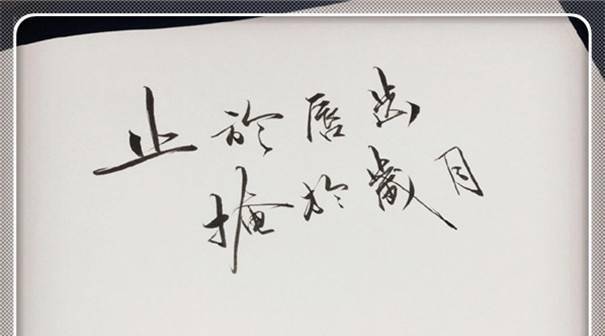 止於唇齿
掩於歲月